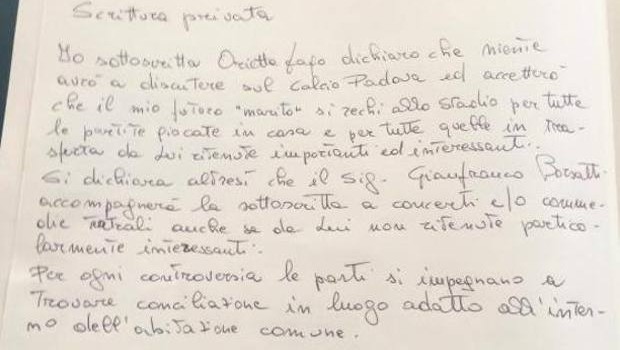 Scrittura privata
Io sottoscritta Orietta Fapo dichiaro che niente
avrò a discutere sul Calcio Padova ed accetterò
che il mio futuro "marito" si rechi allo stadio per tutte
le partite giocate in casa e per tutte quelle in tra-
sferta da lui ritenute importanti ed interessanti.
Si dichiara altresì che il Sig. Gianfranco Borsatti
accompagnerà la sottoscritta a concerti e/o comme-
die teatrali anche se da lui non ritenute partico-
larmente interessanti.
Per ogni controversia le parti si impegnano a
trovare conciliazione in luogo adatto all'inter-
no dell'abitazione comune.